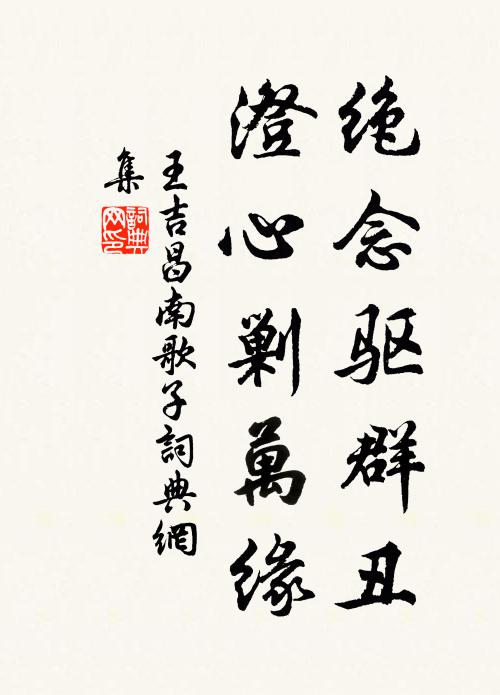 绝念驱群丑
澄心剿萬緣
王吉昌南歌子詞典網
集
詞典網印